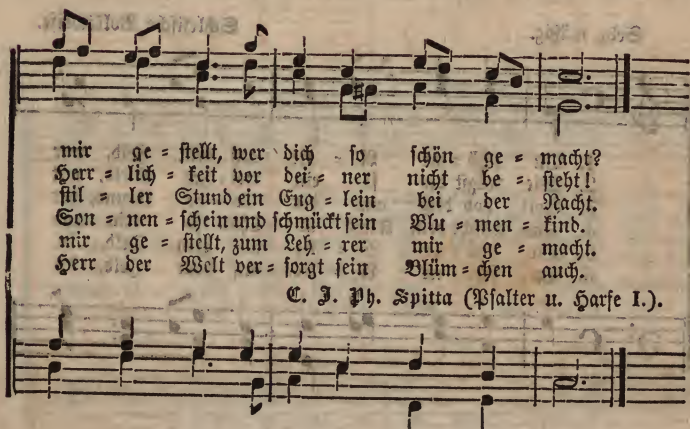 mir ge = stellt, wer dich so schön ge = macht?
Herr = lich = keit vor dei = ner nicht be = steht!
stil = ler Stund ein Eng = lein bei der Nacht.
Son = nen = schein und schmückt sein Blu = men = kind.
mir ge = stellt, zum Leh = rer mir ge = macht.
Herr der Welt ver = sorgt sein Blüm = chen auch.
C. J. Ph. Spitta (Psalter u. Harfe I.).